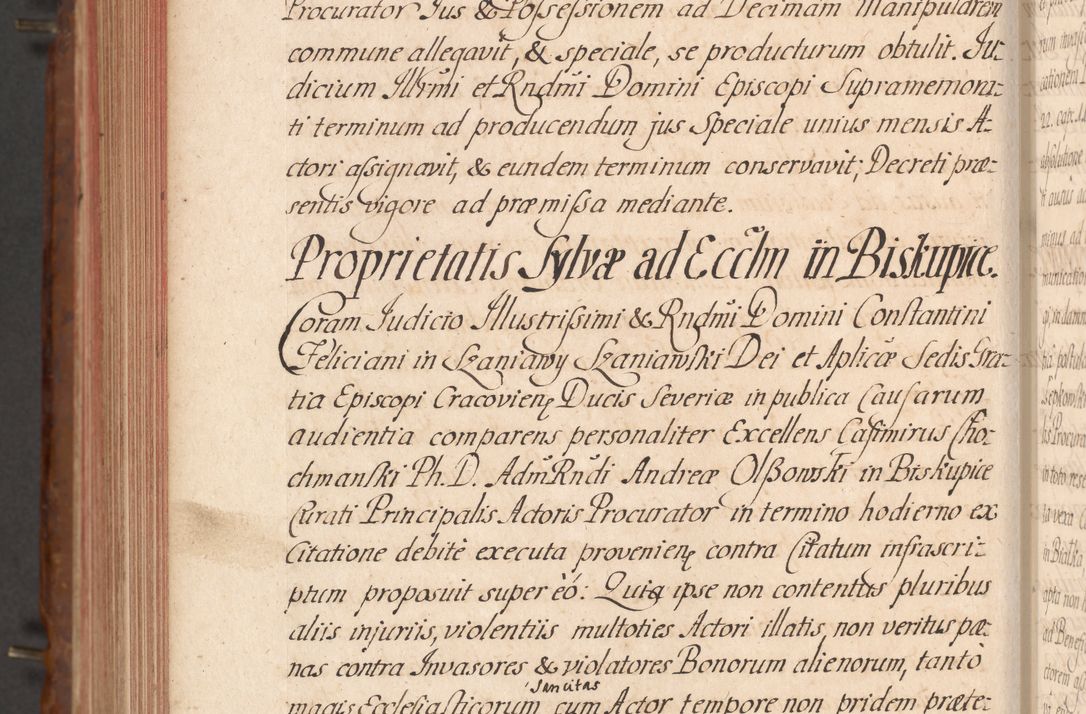 Procurator Jus & Possessionem ad Decimam Manipularem
commune allegavit, & speciale, se producturum obtulit. Ju-
dicium Illrmi et Rndmi Domini Episcopi Supramemora-
ti terminum ad producendum jus Speciale unius mensis A-
ctori assignavit, & eundem terminum conservavit; Decreti præ-
sentis vigore ad præmissa mediante.
Proprietatis Sylvæ ad Ecclm in Biskupice.
Coram Judicio Illustrissimi & Rndmi Domini Constantini
Feliciani in Szaniawy Szaniawski Dei et Aplicæ Sedis Gra-
tia Episcopi Cracovienę Ducis Severiæ in publica Causarum
audientia comparens personaliter Excellens Casimirus Cho-
chmanski Ph. D. Adm Rndi Andreæ Olszowski in Biskupice
Curati Principalis Actoris Procurator in termino hodierno ex
Citatione debitè executa provenienę contra Citatum infrascri-
ptum proposuit super eó: Quia ipse non contentus pluribus
aliis injuriis, violentiis multoties Actori illatis, non veritus pæ-
nas contra Invasores & violatores Bonorum alienorum, tantò
sancitas
magis Ecclesiasticorum cum Actor tempore non pridem præte-